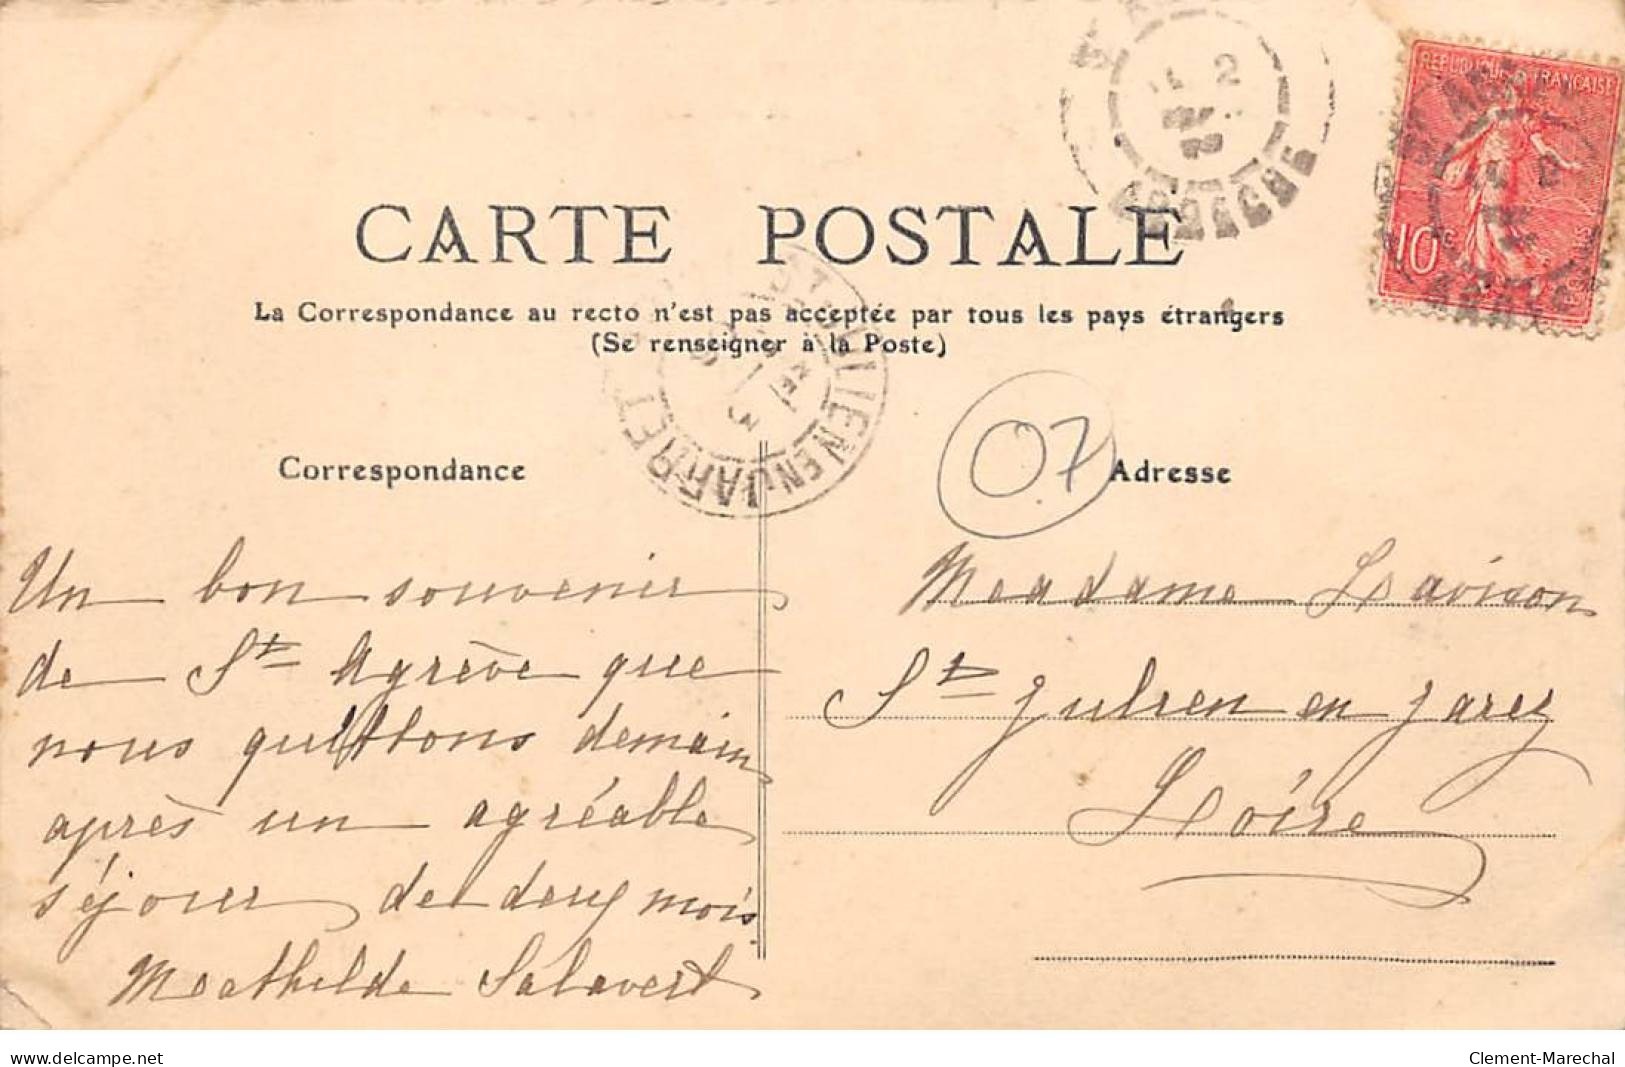 RÉPUBLIQUE FRANÇAISE
10 c
ARDÈCHE
CARTE POSTALE
La Correspondance au recto n'est pas acceptée par tous les pays étrangers
(Se renseigner à la Poste)
ST JULIEN EN JARRET
07
Correspondance
Adresse
Un bon souvenir
de St Agrève que
nous quittons demain
après un agréable
séjour de deux mois
Mathilde Salavert
Madame Lavison
St Julien en Jarez
Loire
delcampe.net
Clement-Marechal